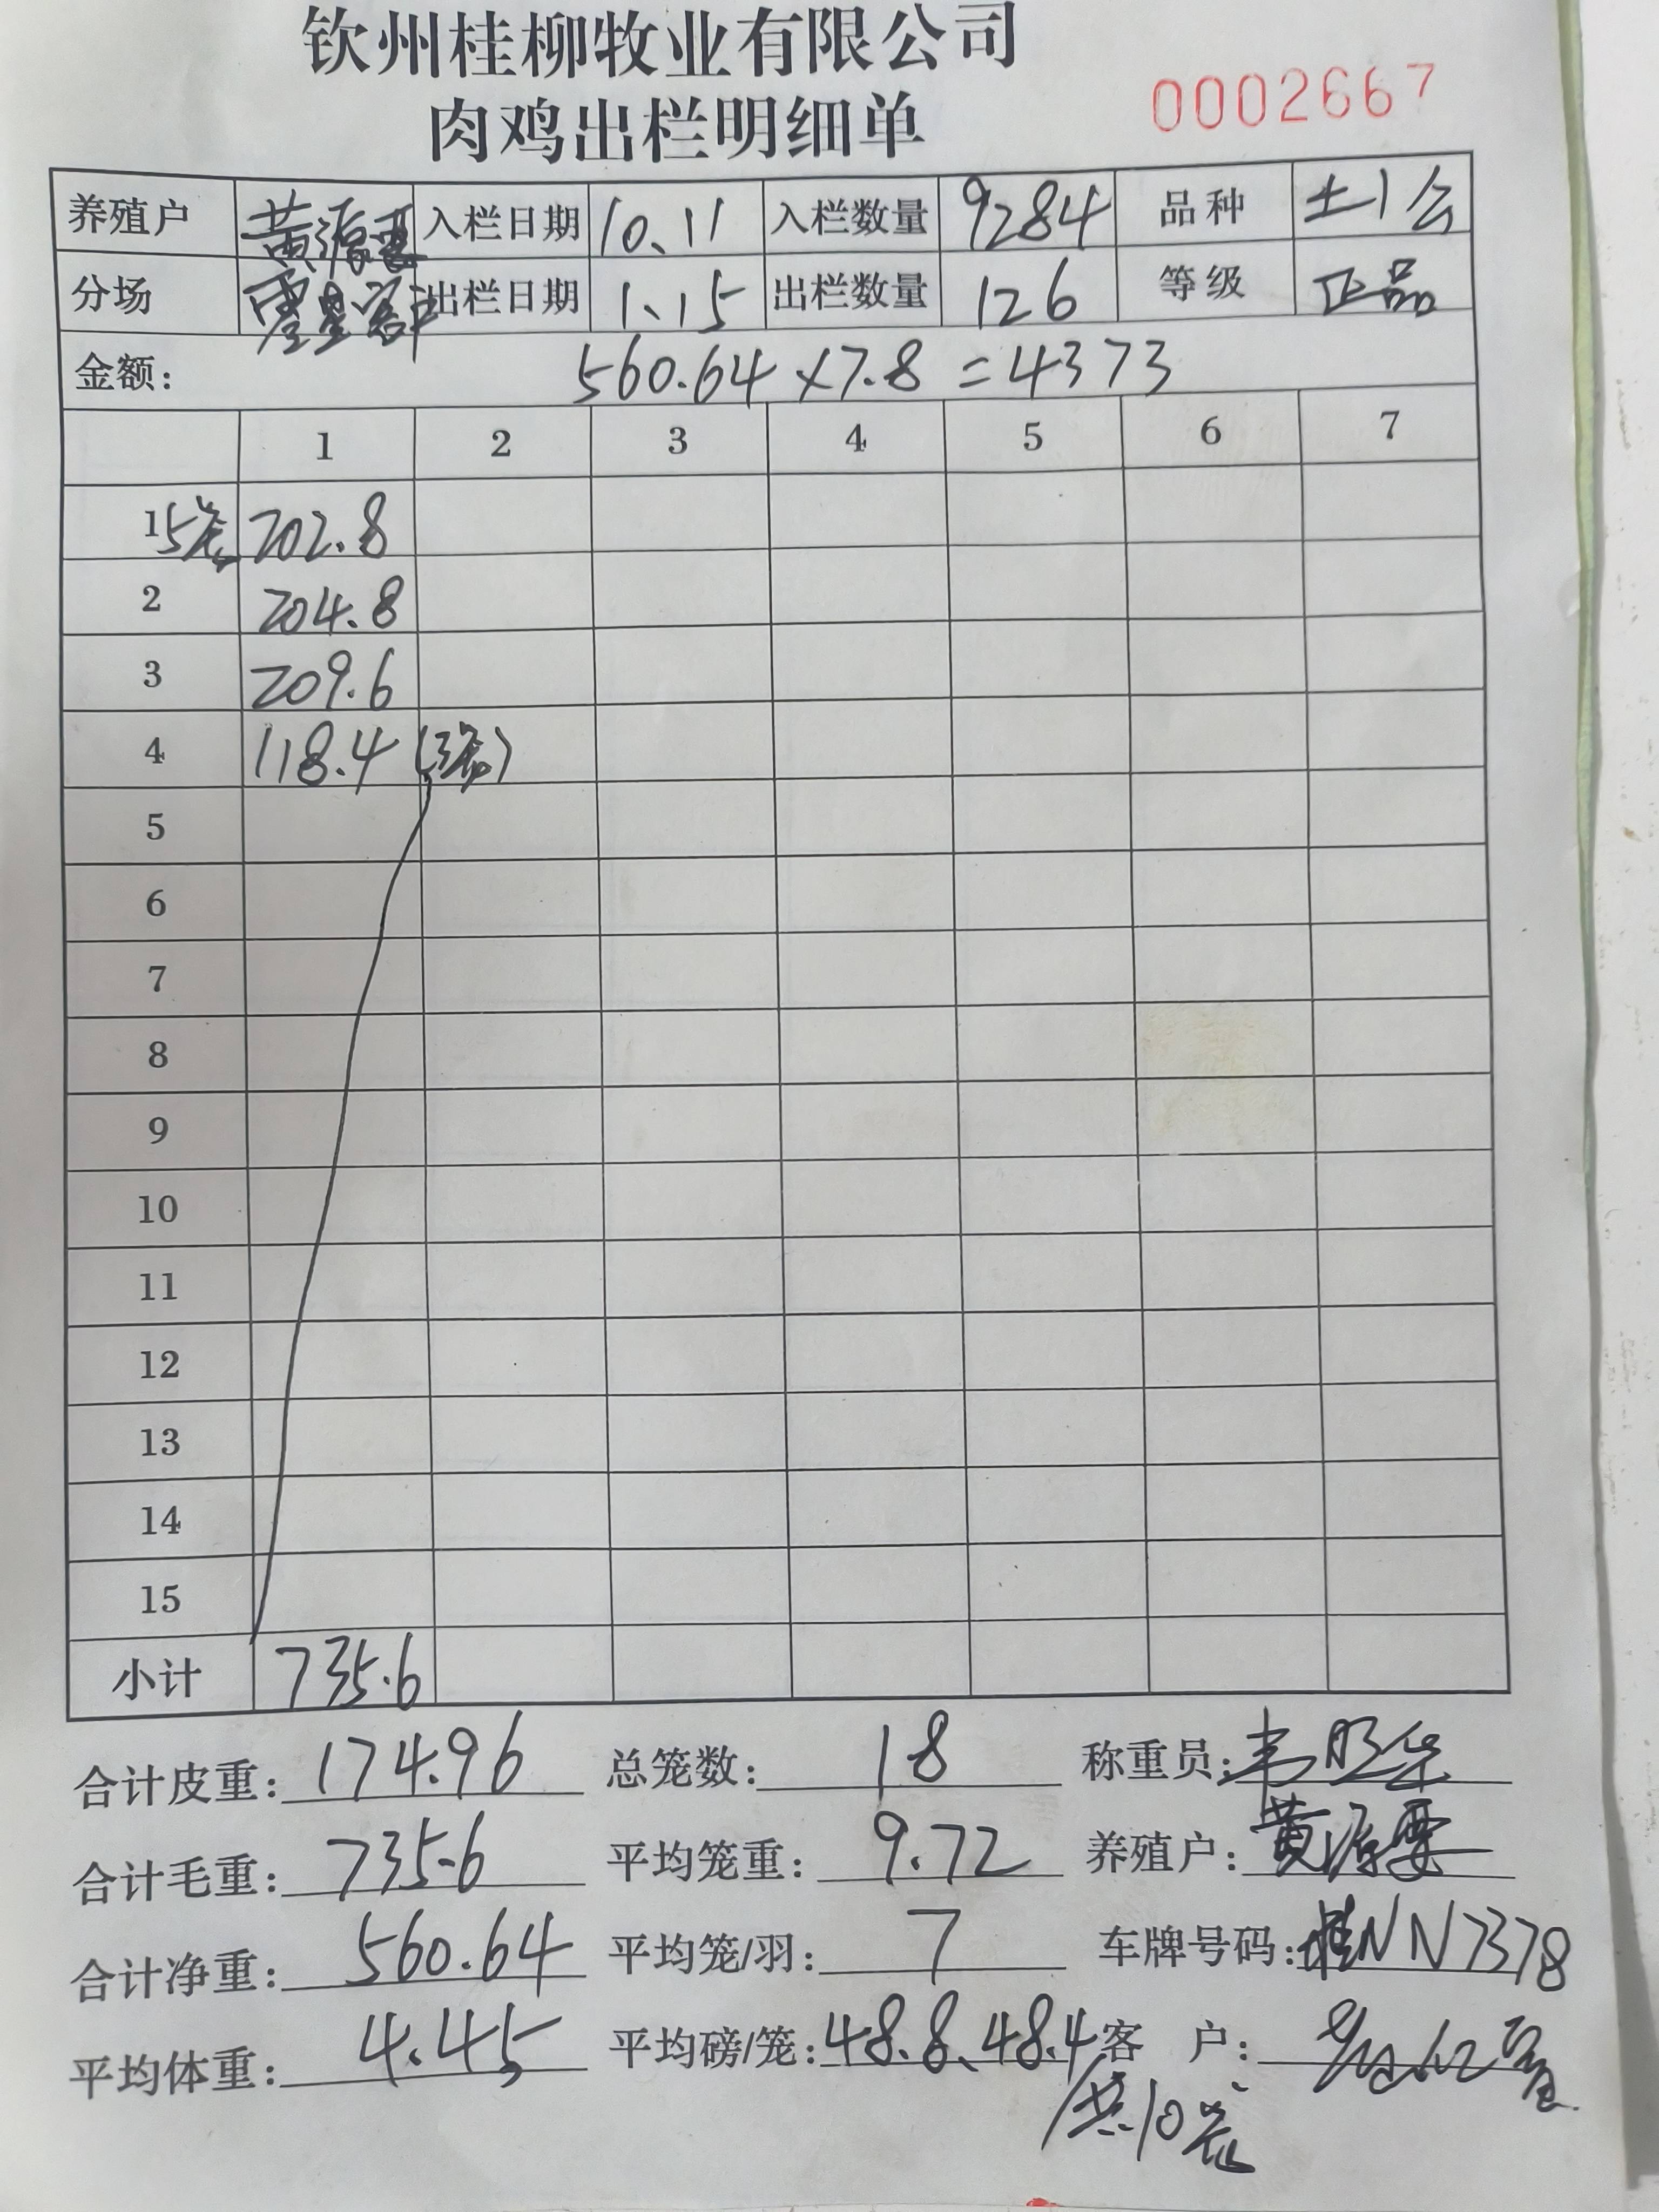 钦州桂柳牧业有限公司
肉鸡出栏明细单
0002667
养殖户 黄源要 入栏日期 10、11 入栏数量 9284 品种 土1公
分场 零星客户 出栏日期 1、15 出栏数量 126 等级 正品
金额: 560.64×7.8=4373
1 2 3 4 5 6 7
1 5笼 202.8
2 204.8
3 209.6
4 118.4 (3笼)
5
6
7
8
9
10
11
12
13
14
15
小计 735.6
合计皮重: 174.96 总笼数: 18 称重员:
合计毛重: 735.6 平均笼重: 9.72 养殖户: 黄源要
合计净重: 560.64 平均笼/羽: 7 车牌号码: 桂NN7378
平均体重: 4.45 平均磅/笼: 48.8、48.4 客 户:
共10笼